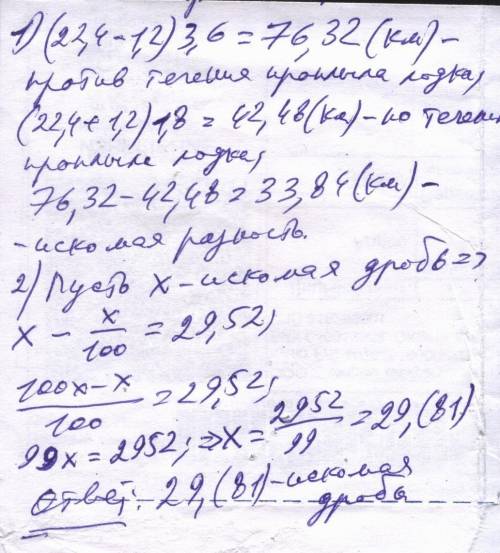 1) (22,4-1,2)3,6=76,32(км)-
против течения проплыла лодка,
(22,4+1,2)1,8=42,48(км)-по течен
проплыла лодка,
76,32-42,48=33,84(км)-
-искомая разность.
2) Пусть х-искомая дробь=>
х - х/100 = 29,52;
100х-х/100 = 29,52;
99х=2952;=>х=2952/99=29,(81)
Ответ: 29,(81)-искомая
дробь